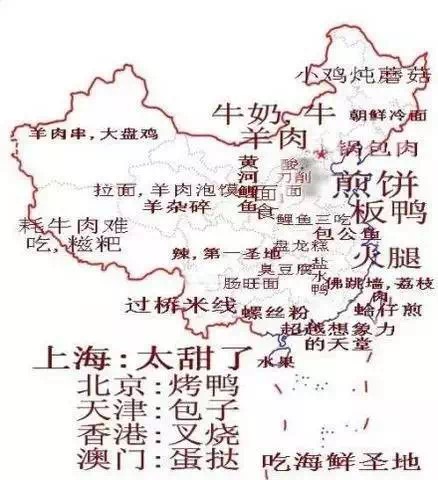 小鸡炖蘑菇
牛奶 牛
羊肉
朝鲜冷面
羊肉串，大盘鸡
锅包肉
黄河鲤鱼
酸，刀削面
煎饼
拉面，羊肉泡馍
面食
羊杂碎
板鸭
鲤鱼三吃
包公鱼
耗牛肉难
吃，糍粑
火腿
盘龙糕
辣，第一圣地
盐水鸭
臭豆腐
肠旺面
佛跳墙，荔枝肉
过桥米线
螺丝粉
蛤仔煎
超越想象力
的天堂
水果
上海：太甜了
北京：烤鸭
天津：包子
香港：叉烧
澳门：蛋挞
吃海鲜圣地